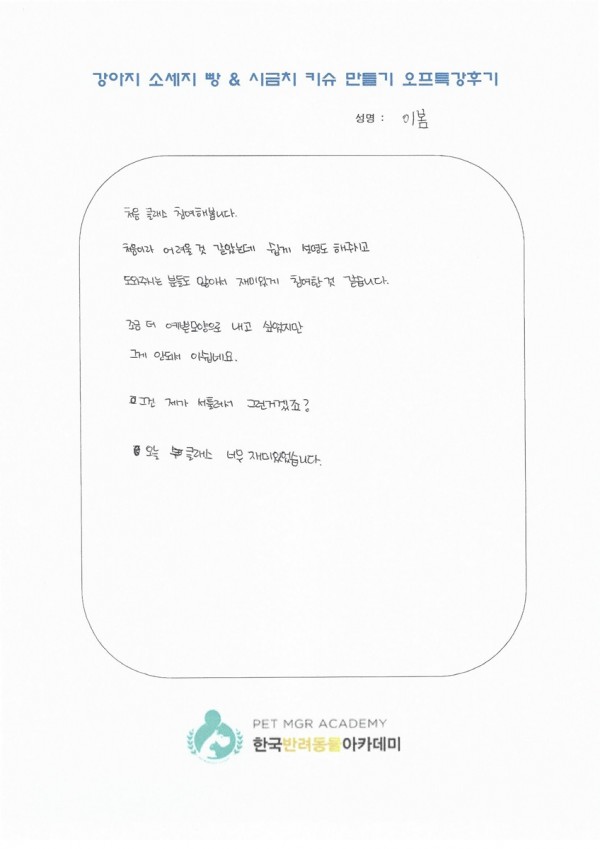 강아지 소세지 빵 & 시금치 키슈 만들기 오프특강후기
성명 : 이봄
처음 클래스 참여해봅니다.
처음이라 어려울 것 같았는데 쉽게 설명도 해주시고
도와주시는 분들도 많아서 재미있게 참여한 것 같습니다.
조금 더 예쁜모양으로 내고 싶었지만
그게 안되서 아쉽네요.
그건 제가 서툴러서 그런거겠죠?
오늘 클래스 너무 재미있었습니다.
PET MGR ACADEMY
한국반려동물아카데미